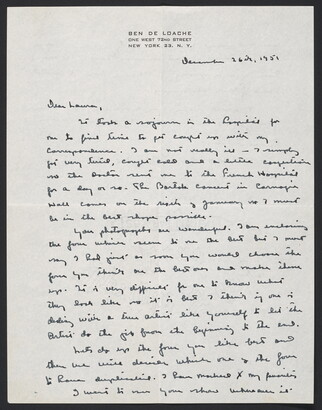 BEN DE LOACHE
ONE WEST 72ND STREET
NEW YORK 23, N. Y.
December 26th, 1951
Dear Laura,
It took a sojourn in the Hospital for
me to find time to get caught up with my
correspondence. I am not really ill — I simply
got very tired, caught cold and a little congestion
so the doctor sent me to the French Hospital
for a day or so. The Bartok concert in Carnegie
Hall comes on the night of January so I must
be in the best shape possible.
Your photographs are wonderful. I am enclosing
the four which seem to me the best but I must
say I had just as soon you would choose the
four you think are the best ones and make them
up. It is very difficult for me to know what
they look like so it is but I think if one is
dealing with a true artist like yourself to let the
Artist do the job from the beginning to the end.
Let's do up the four you like best and
then we will decide which one of the four
to have duplicated. I have marked X my favorites
I want to see your show whenever it